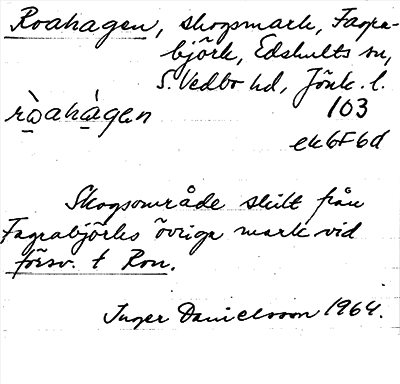 Roahagen, skogsmark, Fagra-
björk, Edshults sn,
S. Vedbo hd, Jönk. l.
ròahàgen 103
ek 6F6d
Skogsområde skilt från
Fagrabjörks övriga mark vid
försv. t Ron.
Inger Danielsson 1964.